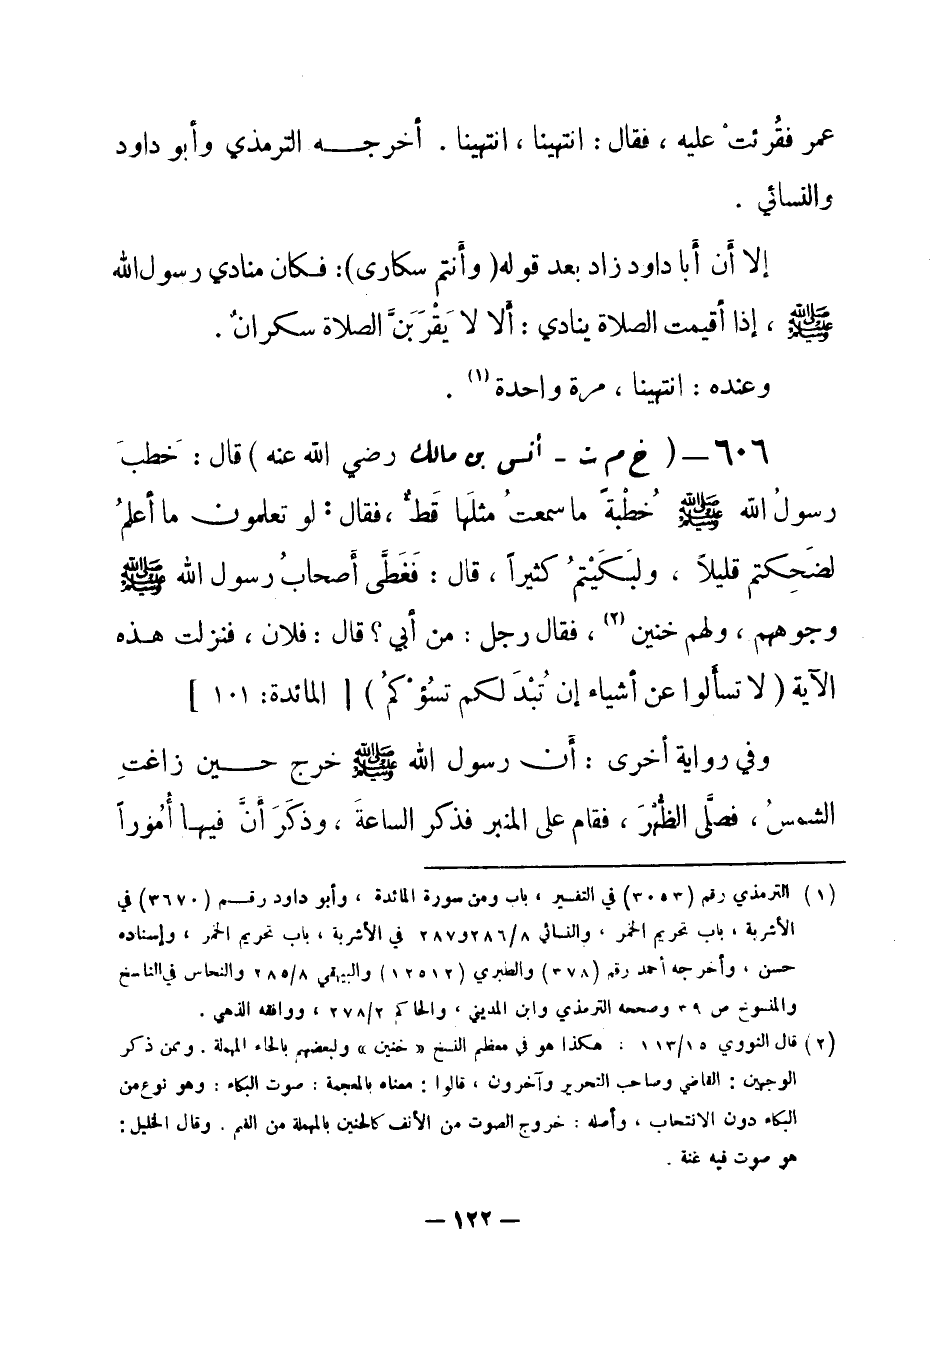 عمر فقُرئتْ عليه ، فقال : انتهينا ، انتهينا . أخرجـــه الترمذي وأبو داود
والنسائي .
إلا أَن أَبا داود زاد بعد قوله ( وأَنتم سكارى ): فـكان منادي رسول الله
ﷺ ، إذا أقيمت الصلاة ينادي : أَلا لا يَقْرَبَنَّ الصلاة سكرانٌ .
وعنده : انتهينا ، مرة واحدة (١) .
٦٠٦ – ( خ م ت - أنس بن مالك رضي الله عنه ) قال : خَطبَ
رسولُ الله ﷺ خُطْبةً ما سمعتُ مثلَها قَطُّ ، فقال : لو تعلمون ما أعلمُ
لضَحِكتم قليلاً ، ولبَكَيْتُم كثيراً ، قال : فَغَطَّى أَصحابُ رسول الله ﷺ
وجوههم ، ولهم خنين (٢) ، فقال رجل : من أبي ؟ قال : فلان ، فنزلت هـذه
الآية ( لا تسألوا عن أشياء إن تُبْدَ لكم تسُؤْكمُ ) [ المائدة: ١٠١ ]
وفي رواية أخرى : أَن رسول الله ﷺ خرج حـــين زاغتِ
الشمسُ ، فصلَّى الظُّهْرَ ، فقام على المنبر فذكر الساعةَ ، وذكَرَ أنَّ فيهـا أُمُوراً
(١) الترمذي رقم (٣٠٥٣) في التفسير ، باب ومن سورة المائدة ، وأبو داود رقـــم (٣٦٧٠) في
الأشربة ، باب تحريم الخمر ، والنسائي ٢٨٦/٨ و٢٨٧ في الأشربة ، باب تحريم الخمر ، وإسناده
حسن ، وأخرجه أحمد رقم (٣٧٨) والطبري (١٢٥١٢) والبيهقي ٢٨٥/٨ والنحاس في الناسخ
والمنسوخ ص ٣٩ وصححه الترمذي وابن المديني ، والحاكم ٢٧٨/٢ ، ووافقه الذهبي .
(٢) قال النووي ١١٣/١٥ : هـكذا هو في معظم النسخ « خنين » ولبعضهم بالحاء المهملة . وممن ذكر
الوجهين : القاضي وصاحب التحرير وآخرون ، قالوا : معناه بالمعجمة : صوت البكاء : وهو نوع من
البكاء دون الانتحاب ، وأصله : خروج الصوت من الأنف كالحنين بالمهملة من الفم . وقال الخليل :
هو صوت فيه غنة .
– ١٢٢ –